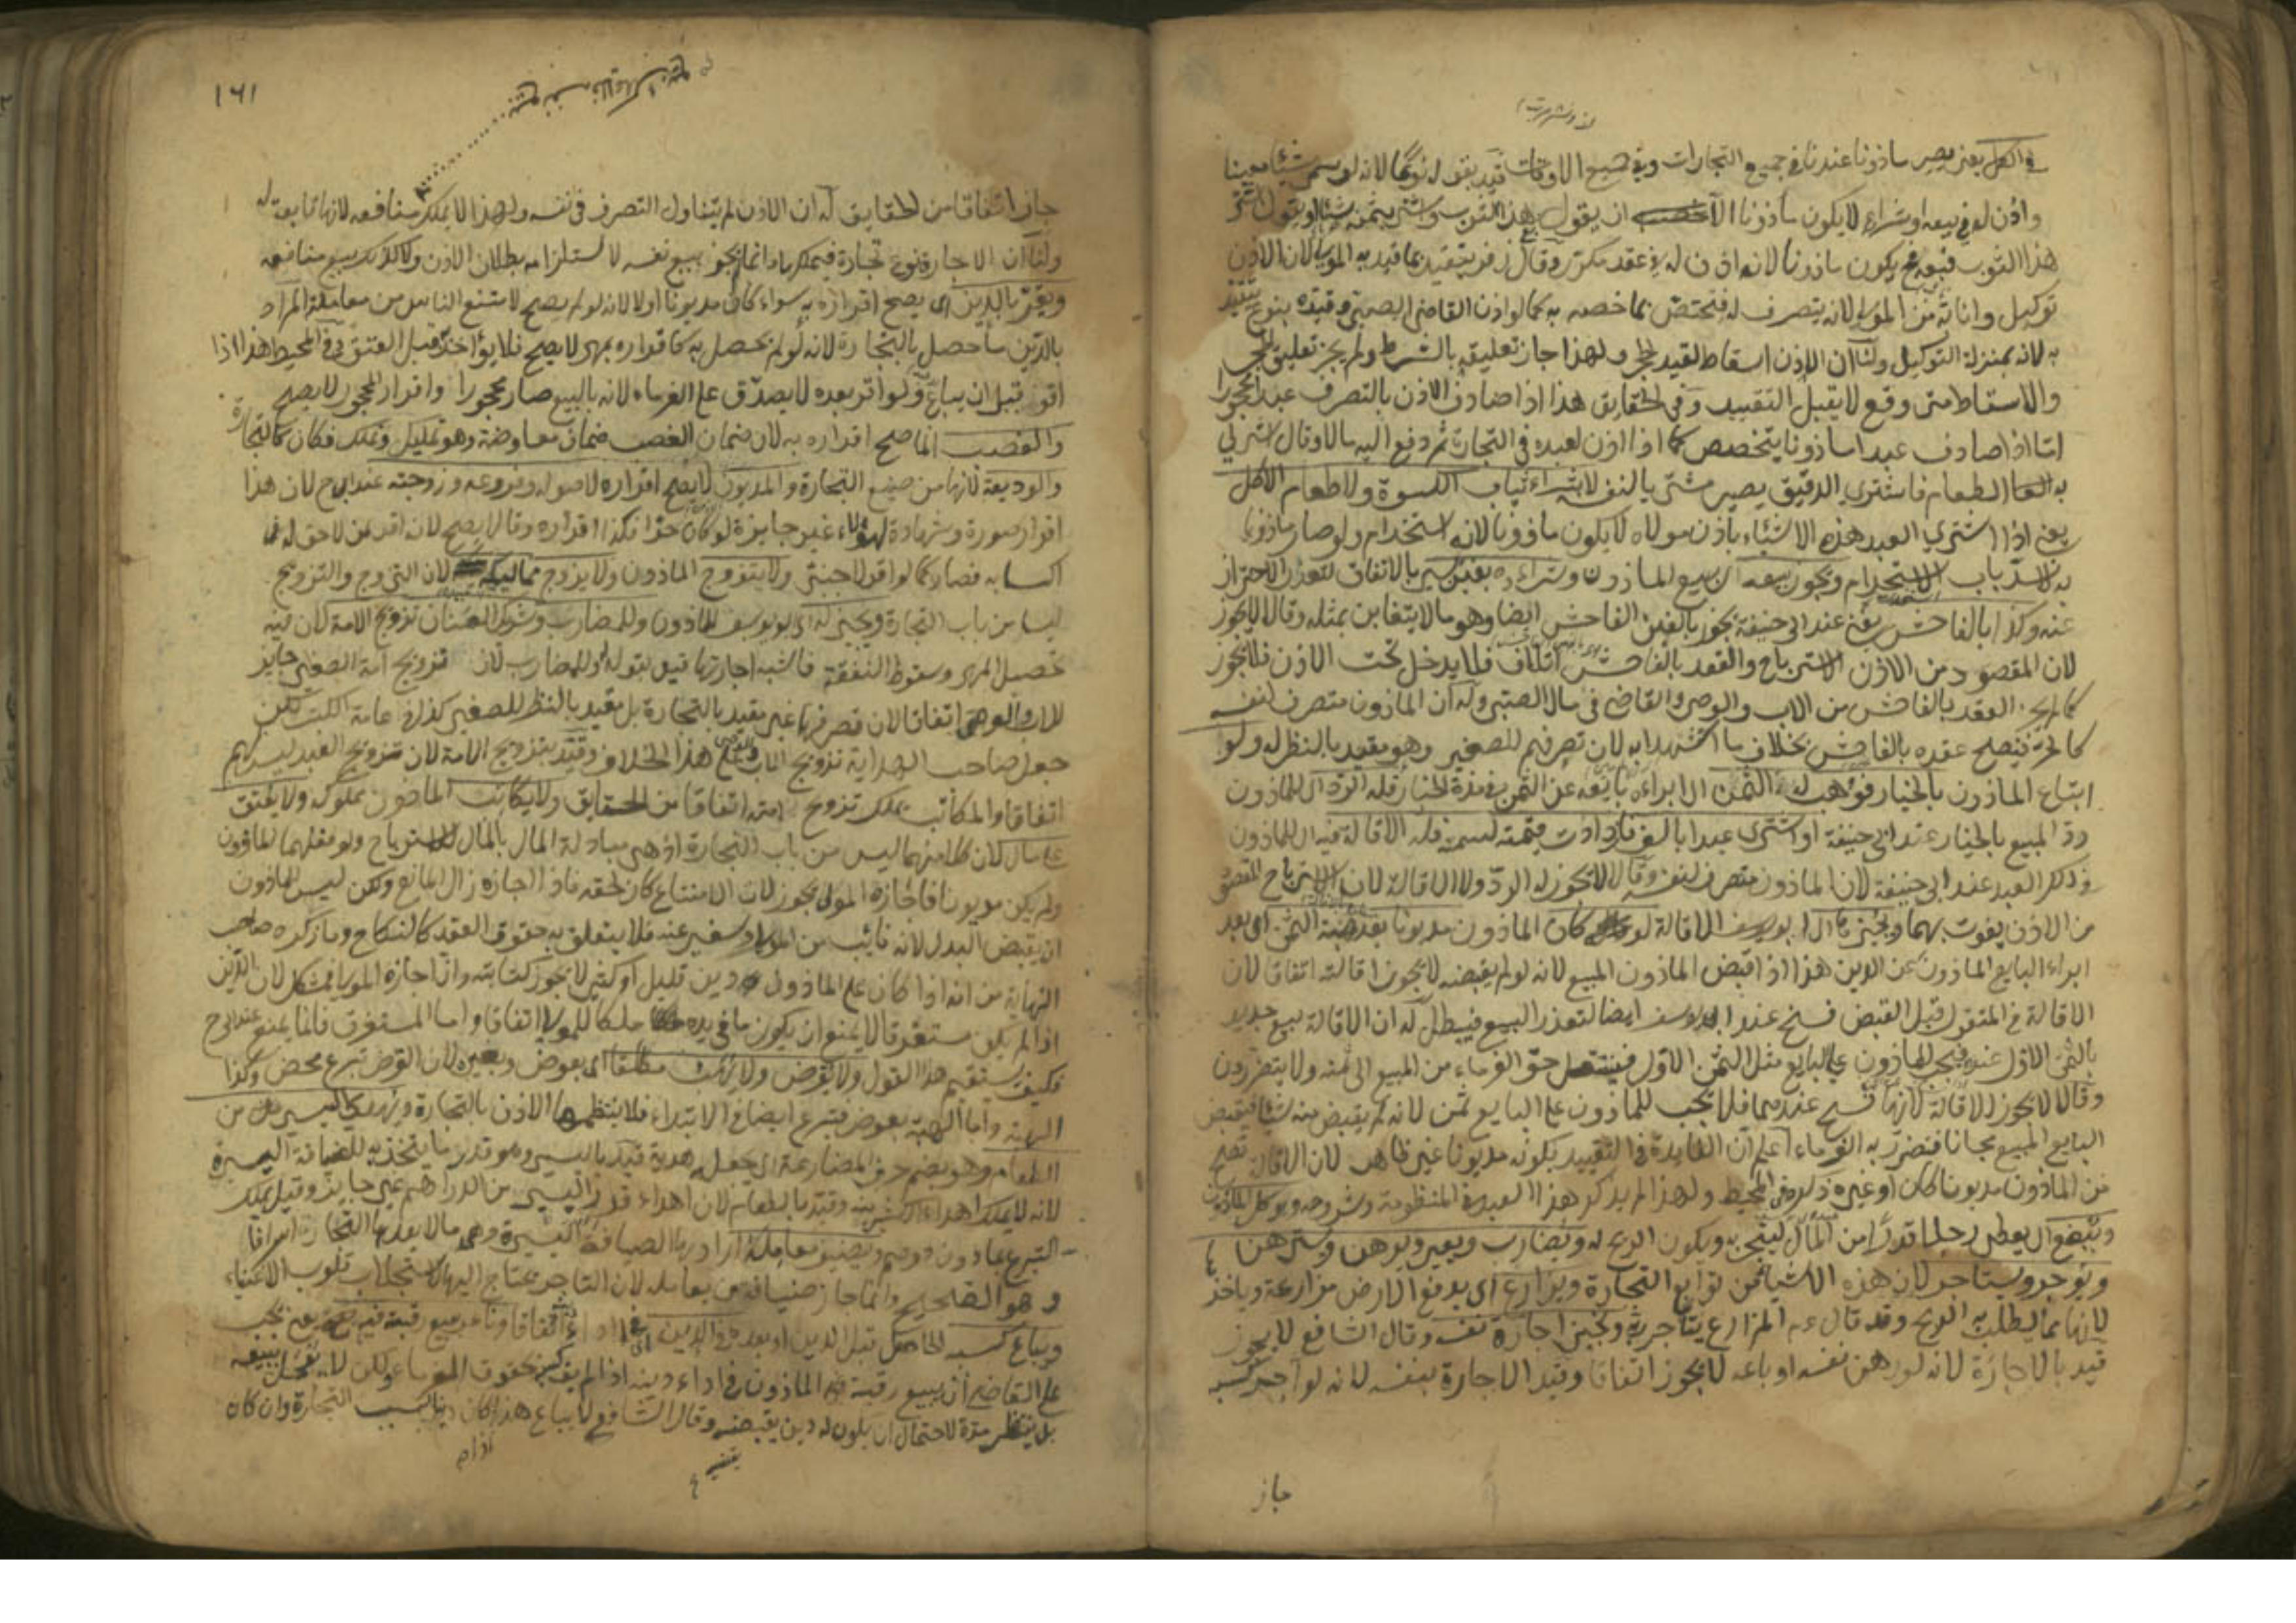 في الكل يعني يصير مأذونا عندنا في جميع التجارات وفي جميع الاوقات قيد بقوله نوعا لانه لو سمى شيئا معينا
واذن له في بيعه او شراءه لا يكون مأذونا الا ان يقول بع هذا الثوب واشتر بثمنه شيئا او يقول اشتر
هذا الثوب فبعه يكون مأذونا لانه اذن له في عقد مكرر وقال زفر يتقيد بما قيد به المولى لان الاذن
توكيل وانابة من المولى لانه يتصرف له فتختص بما خصه به كما لو اذن القاضي الصبي وقيده بنوع يتقيد
به لانه بمنزلة التوكيل ولنا ان الاذن اسقاط لقيد الحجر ولهذا جاز تعليقه بالشرط ولم يجز تعليق الحجر
والاسقاط متى وقع لا يقبل التقييد وفي الحقايق هذا اذا صادف الاذن بالتصرف عبدا محجورا
اما اذا صادف عبدا مأذونا يتخصص كما اذا اذن لعبده في التجارة ثم دفع اليه مالا وقال اشتر لي
به الطعام فاشترى الدقيق يصير مشتريا لنفسه لا بشراء ثياب الكسوة ولا طعام الاكل
يعني اذا اشترى العبد هذه الاشياء باذن مولاه لا يكون مأذونا لانه استخدام ولو صار مأذونا
به لانسد باب الاستخدام ويجوز بيعه اي بيع المأذون وشراءه بغبن يسير بالاتفاق لتعذر الاحتراز
عنه وكذا بالفاحش يعني عند ابي حنيفة يجوز بالغبن الفاحش ايضا وهو ما لا يتغابن بمثله وقالا لا يجوز
لان المقصود من الاذن الاسترباح والعقد بالفاحش اتلاف فلا يدخل تحت الاذن فلا يجوز
كما لم يجز العقد بالفاحش من الاب والوصي والقاضي في مال الصبي وله ان المأذون متصرف لنفسه
كالحر فيصح عقده بالفاحش بخلاف ما استشهدا به لان تصرفهم للصغير وهو مقيد بالنظر له ولو
ابتاع المأذون بالخيار فوهب له الثمن اي ابراءه بايعه عن الثمن في مدة الخيار فله الرد اي للمأذون
رد المبيع بالخيار عند ابي حنيفة او اشترى عبدا بالف فازدادت قيمته فله الاقالة فيه اي للمأذون
في ذلك العبد عند ابي حنيفة لان المأذون متصرف لنفسه وقالا لا يجوز له الرد ولا الاقالة لان الاسترباح المقصود
من الاذن يفوت بهما ويجيز ابو يوسف الاقالة لو كان المأذون مديونا بعد هبة الثمن اي بعد
ابراء البايع المأذون عن الدين هذا اذا قبض المأذون المبيع لانه لو لم يقبضه لا يجوز اقالته اتفاقا لان
الاقالة في المنقول قبل القبض فسخ عند ابي يوسف ايضا لتعذر البيع فيبطل له ان الاقالة بيع جديد
بالثمن الاول عنده فيجب للمأذون على البايع مثل الثمن الاول فينتقل حق الغرماء من المبيع الى ثمنه ولا يتضررون
وقالا لا يجوز الاقالة لانها فسخ عندهما فلا يجب للمأذون على البايع ثمن لانه لم يقبض منه شيئا فيقبض
البايع المبيع مجانا فتضرر به الغرماء اعلم ان الفائدة في التقييد بكونه مديونا غير ظاهر لان الاقالة تصح
من المأذون مديونا كان او غيره ذكره في المحيط ولهذا لم يذكر هذا القيد في المنظومة وشروحه ويوكل المأذون
ويبضع اي يعطي رجلا قدرا من المال ليتجر به ويكون الربح له ويضارب ويعير ويرهن ويسترهن
ويؤجر ويستأجر لان هذه الاشياء من توابع التجارة ويزارع اي يدفع الارض مزارعة وياخذ
لانها مما يطلب به الربح وقد قال عم المزارع يتاجر ربه ونجيز اجارة نفسه وقال الشافعي لا يجوز
قيد بالاجارة لانه لو رهن نفسه او باعه لا يجوز اتفاقا وقيد الاجارة بنفسه لانه لو آجر كسبه
جاز
١٦١
جاز اتفاقا من الحقايق له ان الاذن لم يتناول التصرف في نفسه ولهذا لا يملك منافعه لانها تابعة له
ولنا ان الاجارة نوع تجارة فيملكها وانما لم يجز بيع نفسه لاستلزامه بطلان الاذن ولا كذلك بيع منافعه
ويقر بالدين اي يصح اقراره به سواء كان مديونا او لا لانه لو لم يصح لامتنع الناس من معاملته المراد
بالدين ما حصل بالتجارة لانه لو لم يحصل به كاقراره بمهر لا يصح فلا يؤاخذ قبل العتق في المحيط هذا اذا
اقر قبل ان يباع ولو اقر بعده لا يصدق على الغرماء لانه بالبيع صار محجورا واقرار المحجور لا يصح
والغصب انما صح اقراره به لان ضمان الغصب ضمان معاوضة وهو تمليك وتملك فكان كالتجارة
والوديعة لانها من صنيع التجارة والمديون لا يصح اقراره لاصوله وفروعه وزوجته عند ابي ح لان هذا
اقرار صورة وشهادة لهؤلاء غير جايزة لو كان حرا فكذا اقراره وقالا يصح لان اقر لمن لا حق له في
اكسابه فصار كما لو اقر لاجنبي ولا يتزوج المأذون ولا يزوج مماليكه لان التزوج والتزويج
ليسا من باب التجارة ويجيز له ابو يوسف للمأذون وللمضارب وشريك العنان تزويج الامة لان فيه
تحصيل المهر وسقوط النفقة فاشبه اجارتها قيد بقوله وللمضارب لان تزويج امة الصغير جايز
للاب والوصي اتفاقا لان تصرفهما غير مقيد بالتجارة بل مقيد بالنظر للصغير كذا في عامة الكتب لكن
جعل صاحب الهداية تزويج الاب والوصي على هذا الخلاف وقيد بتزويج الامة لان تزويج العبد ليس لهم
اتفاقا والمكاتب يملك تزويج امته اتفاقا من الحقايق ولا يكاتب المأذون مملوكه ولا يعتق
على مال لان كلا منهما ليس من باب التجارة اذ هي مبادلة المال بالمال للاسترباح ولو فعلهما المأذون
ولم يكن مديونا فاجازه المولى يجوز لان الامتناع كان لحقه فاذا اجازه زال المانع ولكن ليس للمأذون
ان يقبض البدل لانه نائب من المولى وسفير عنه فلا يتعلق به حقوق العقد كالنكاح وما ذكره صاحب
النهاية من انه اذا كان على المأذون دين قليل او كثير لا يجوز كتابته وان اجازه المولى فمشكل لان الدين
اذا لم يكن مستغرقا لا يمنع ان يكون ما في يده ملكا للمولى اتفاقا واما المستغرق فانما يمنع عند ابي ح
فكيف يستقيم هذا القول ولا يقرض ولا يهب مطلقا اي بعوض وبغيره لان القرض تبرع محض وكذا
الهبة واما الهبة بعوض فتبرع ايضا في الابتداء فلا ينتظمها الاذن بالتجارة ويهدي اليسير من
الطعام وهو بضم حرف المضارعة اي جعله هدية قيد باليسير وهو قدر ما يتخذ به للضيافة اليسيرة
لانه لا يملك اهداء الكثير منه وقيد بالطعام لان اهداء قدر اليسير من الدراهم غير جايز وقيل يملك
التبرع بما دون درهم ويضيف معامله اراد بها الضيافة اليسيرة وهي ما لا يعدها التجار اسرافا
وهو الصحيح وانما جاز ضيافة من يعامله لان التاجر محتاج اليها لاستجلاب قلوب الاغنياء
ويباع كسبه الحاصل قبل الدين او بعده في الدين اي في اداءه اتفاقا ونامر ببيع رقبته فيه يعني يجب
على القاضي ان يبيع رقبة المأذون في اداء دينه اذا لم يف كسبه بحقوق الغرماء ولكن لا يعجل ببيعه
بل ينتظر مدة لاحتمال ان يكون له دين يقبضه وقال الشافعي لا يباع هذا اذا كان دينا بسبب التجارة وان كان